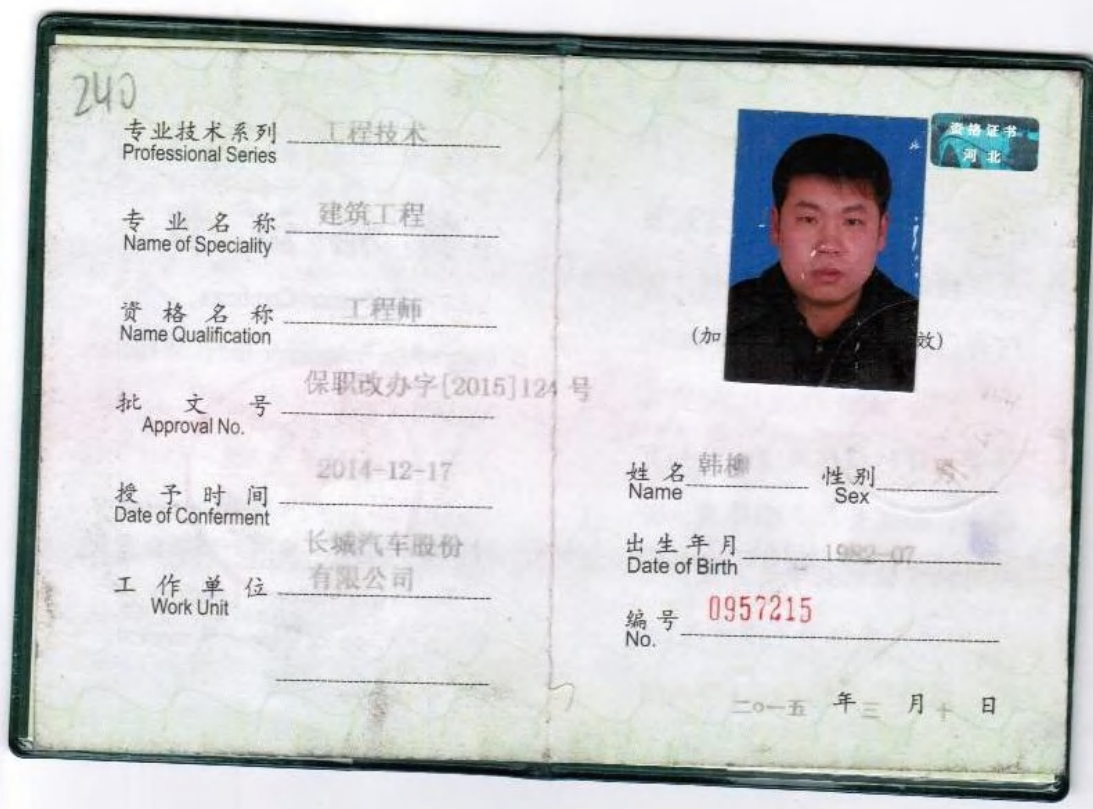 240
专业技术系列 工程技术
Professional Series
专业名称 建筑工程
Name of Speciality
资格名称 工程师
Name Qualification
保职改办字[2015]124 号
批文号
Approval No.
2014-12-17
授予时间
Date of Conferment
长城汽车股份
工作单位 有限公司
Work Unit
资格证书
河北
(加 效)
姓名 韩柳 性别 男
Name Sex
出生年月 1982-07
Date of Birth
编号 0957215
No.
二〇一五 年 三 月 十 日